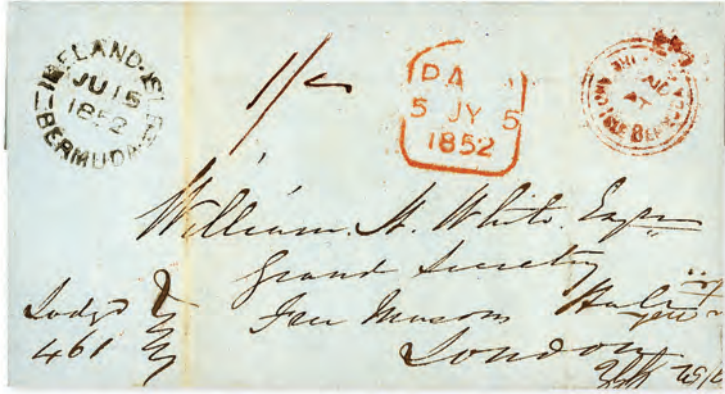 IRELAND·ISLE
JU 15
1852
BERMUDA
1/-
PA
5 JY 5
1852
PAID
AT
BERMUDA
William. H. White. Esqre
Grand Secretary
Free Masons Hall
London
Lodge
461